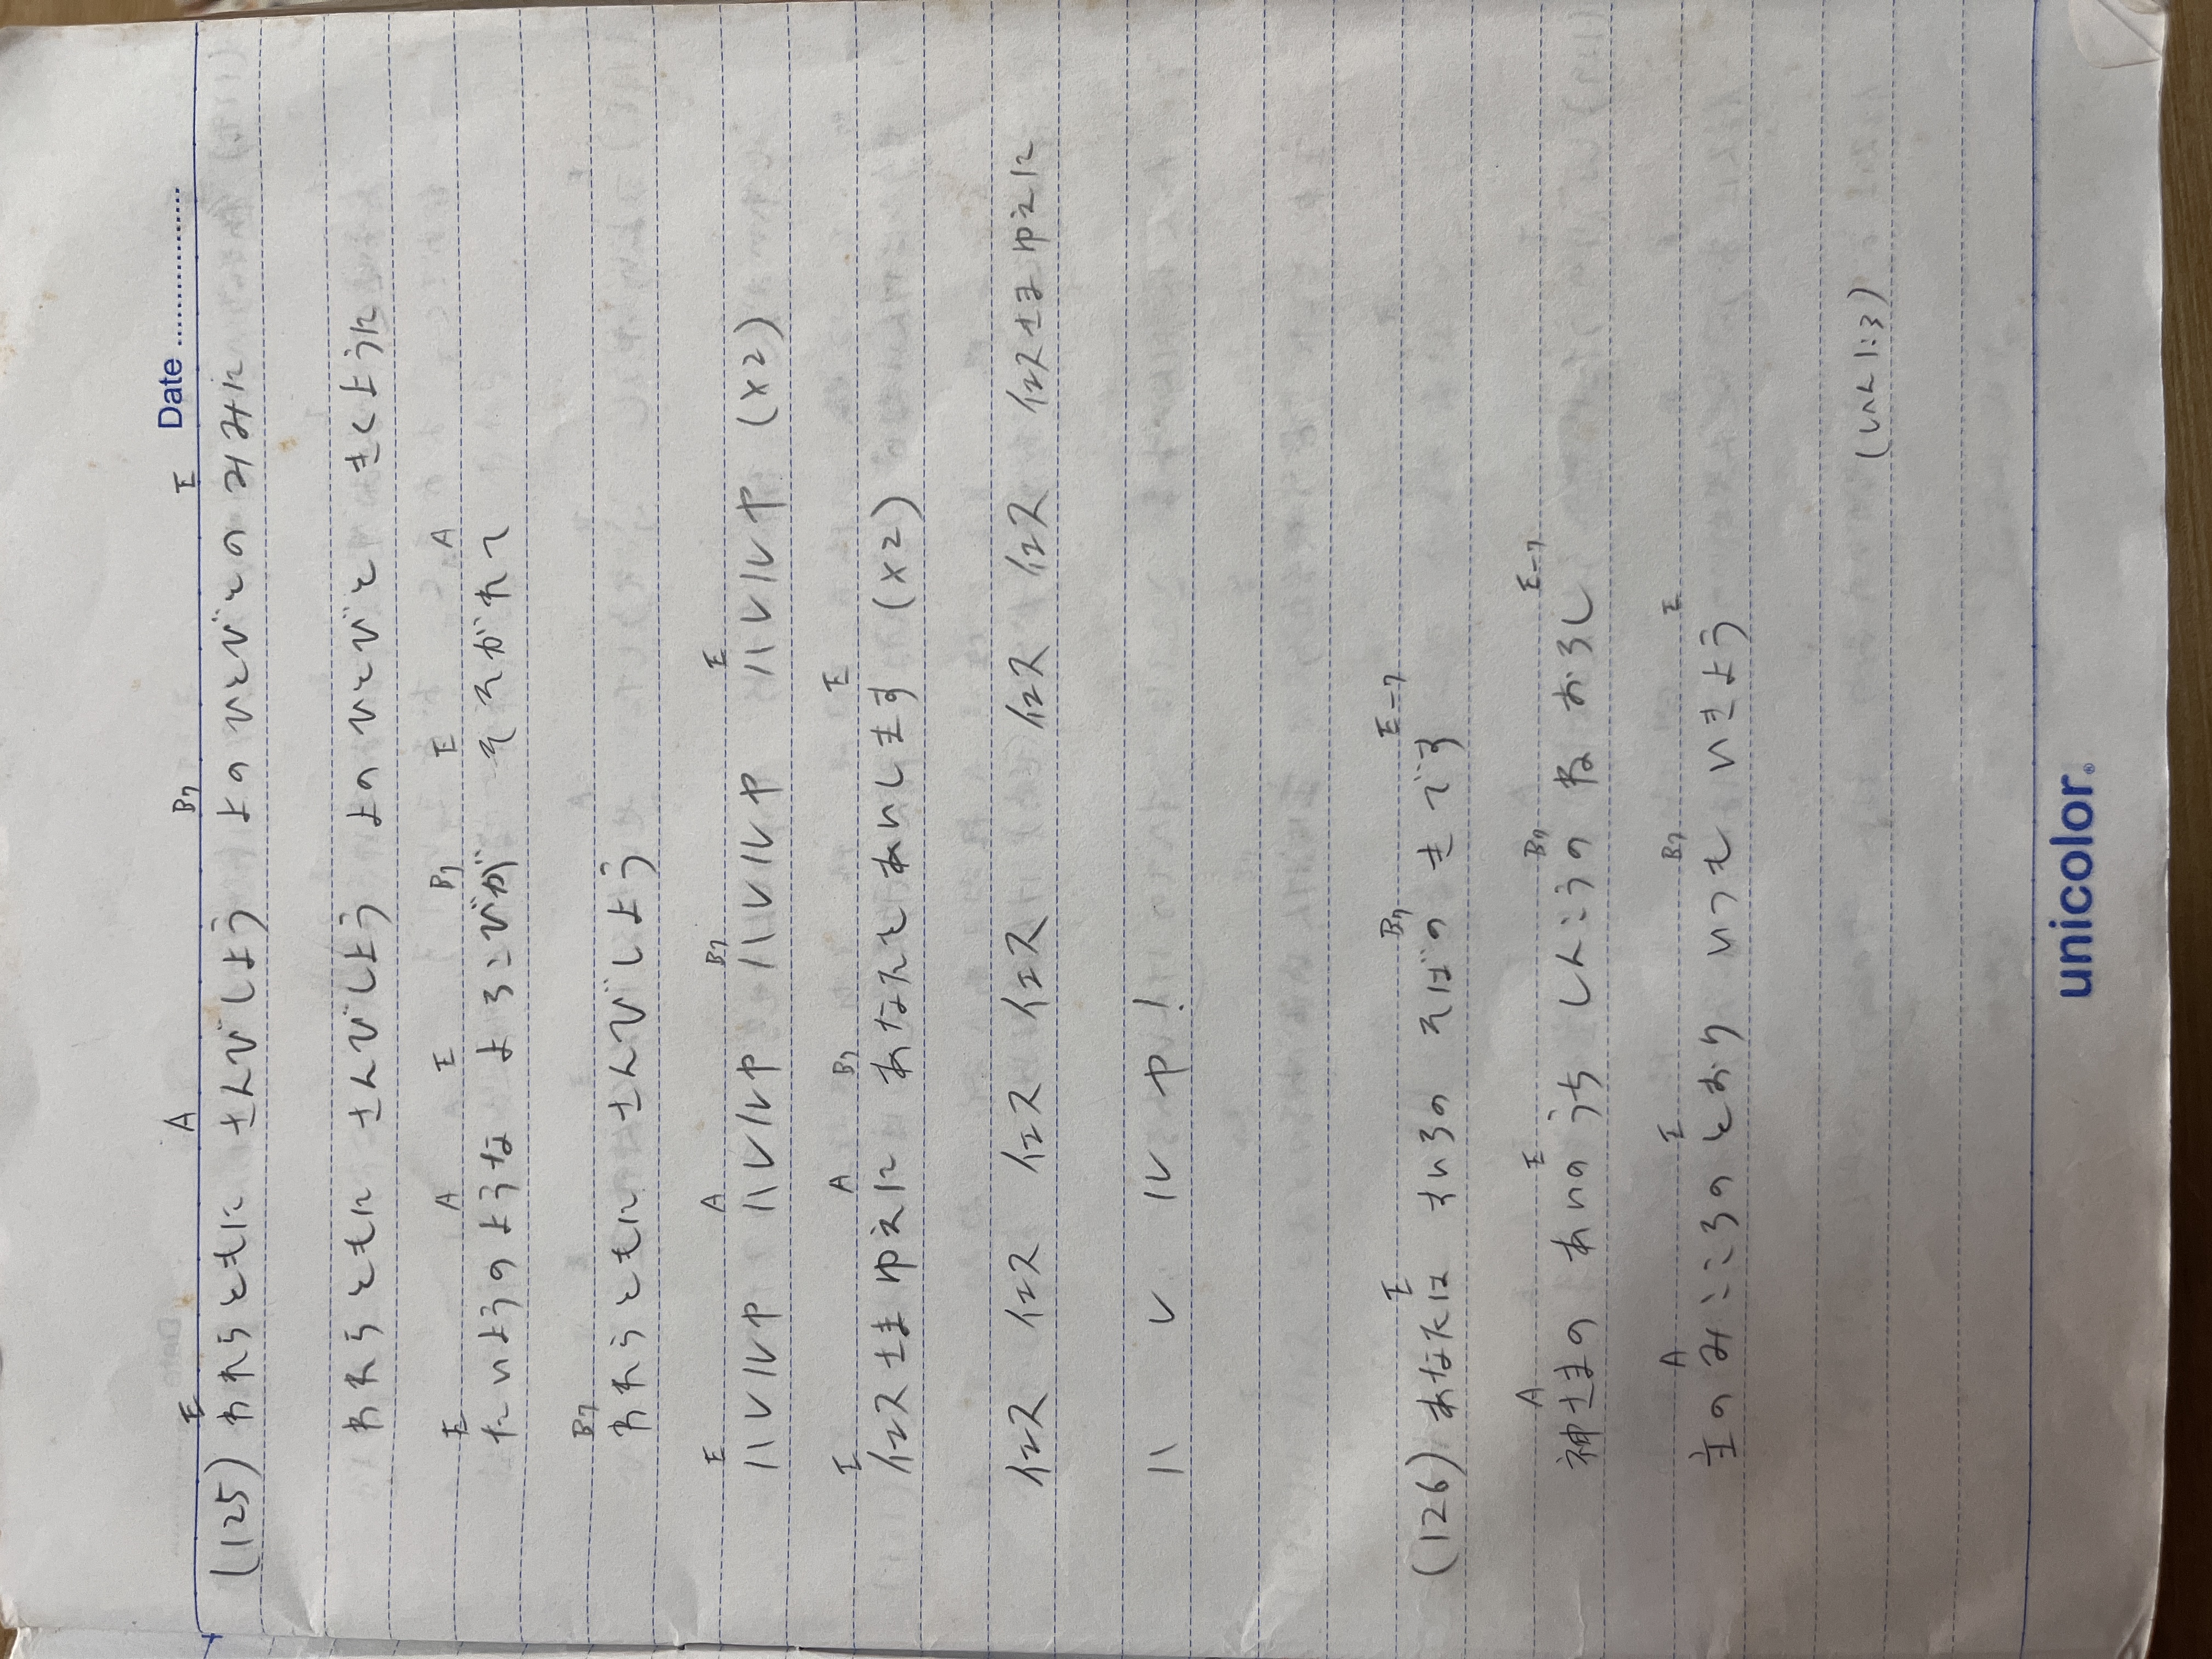 Date
E A B7 E
(125) われらともに さんびしよう よのひとびとのみみに
われらともに さんびしよう よのひとびと きくように
E A E B7 E A
たいようのような よろこびが そそがれて
B7
われらともに さんびしよう
E A B7 E
ハレルヤ ハレルヤ ハレルヤ ハレルヤ (x2)
E A B7 E
イエスさまゆえに あなたとあいします (x2)
イエス イエス イエス イエス イエス イエス イエスさまゆえに
ハ レ ル ヤ!
E B7 E-7
(126) あなたは すいろの そばの きです
A E B7 E-7
神さまの あいのうち しんこうの ね おろし
A E B7 E
主のみこころのとおり いつも いきよう
(しへん1:3)
unicolor®